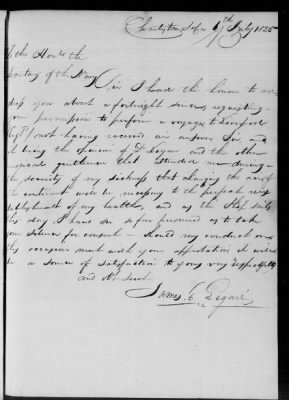 Charleston So Ca 6th July 1825
To the Honble the
Secretary of the Navy
Sir I had the honour to ad
dress you about a fortnight since, requesting
your permission to perform a voyage to Liverpool
(Eng'd) not having received an answer Sir and
it being the opinion of Dr Logan and the other
medical gentlemen that attended me during
the severity of my sickness that changing the air of
the continent would be necessary to the perfect rees
tablishment of my health, and as the Ship sails
this day, I have so far presumed as to take
your silence for consent – should my conduct on
this occasion meet with your approbation it will
be a source of satisfaction to yours very respectfully
and Obt Servt
James C Legaré